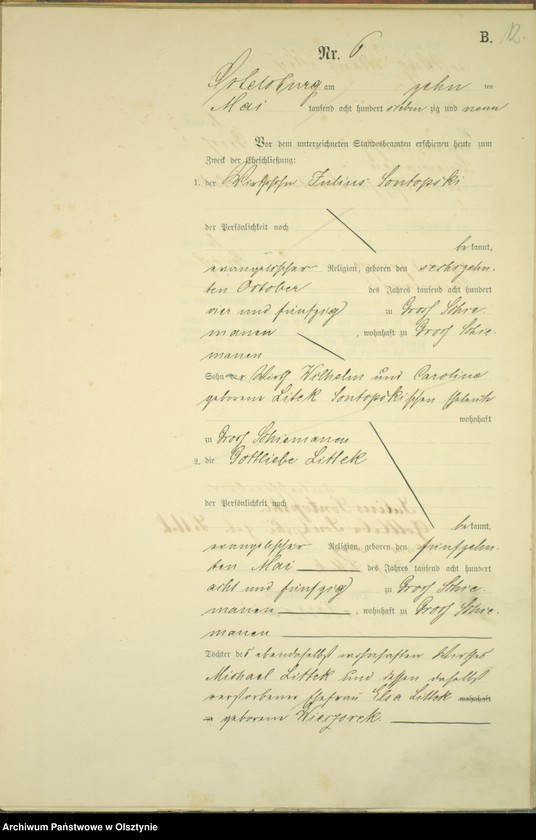 B. 12.
Nr. 6.
Ortelsburg am zehn ten
Mai tausend acht hundert sieben zig und neun
Vor dem unterzeichneten Standesbeamten erschienen heute zum
Zweck der Eheschließung:
1. der Wirthssohn Julius Sontopski
der Persönlichkeit nach
be kannt,
evangelischer Religion, geboren den sechszehn-
ten October des Jahres tausend acht hundert
vier und fünfzig zu Groß Schie-
manen, wohnhaft zu Groß Schie-
manen
Sohn der Wirth Wilhelm und Caroline
geborene Littek Sontopskischen Eheleute
wohnhaft
zu Groß Schiemanen
2. die Gottliebe Littek
der Persönlichkeit nach
be kannt,
evangelischer Religion, geboren den fünfzehn-
ten Mai des Jahres tausend acht hundert
acht und fünfzig zu Groß Schie-
manen, wohnhaft zu Groß Schie-
manen
Tochter des ebendaselbst wohnhaften Wirthes
Michael Littek und dessen daselbst
verstorbener Ehefrau Elsa Littek wohnhaft
geborene Wieczorek.
Archiwum Państwowe w Olsztynie